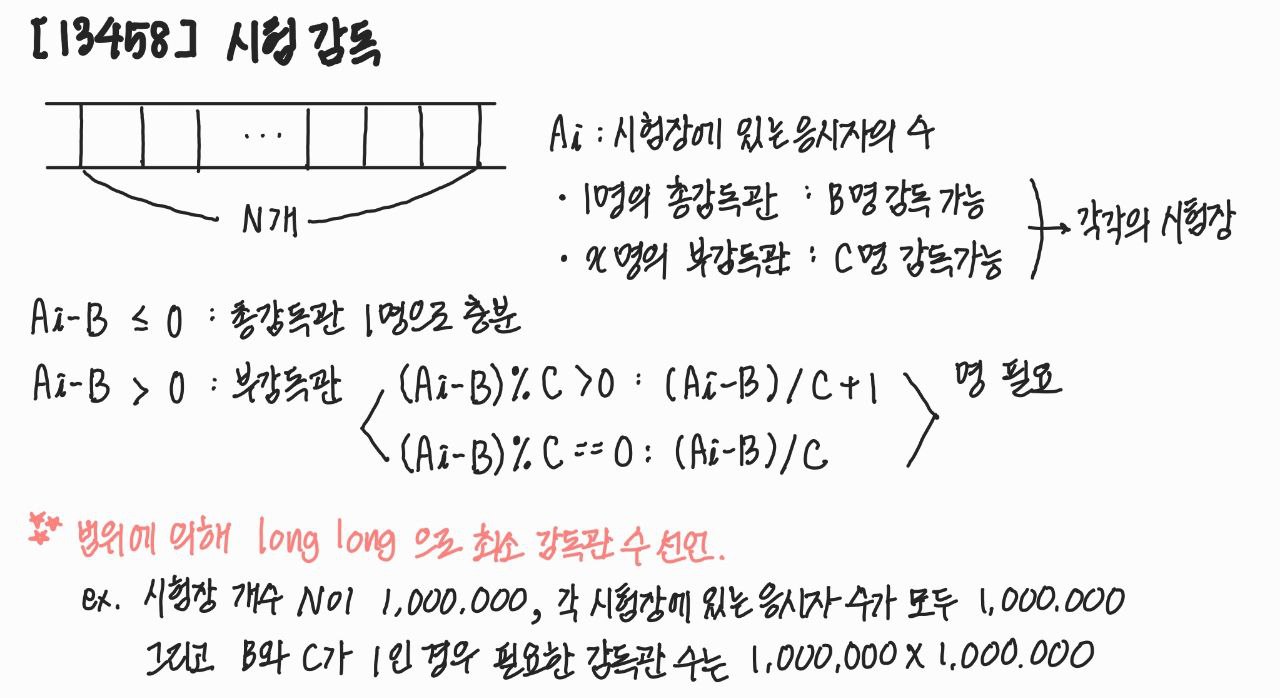 [13458] 시험 감독
...
N개
Ai : 시험장에 있는 응시자의 수
· 1명의 총감독관 : B명 감독 가능
· x명의 부감독관 : C명 감독가능
→ 각각의 시험장
Ai-B ≤ 0 : 총감독관 1명으로 충분
Ai-B > 0 : 부감독관
(Ai-B)%C>0 : (Ai-B)/C+1
(Ai-B)%C==0 : (Ai-B)/C
명 필요
범위에 의해 long long 으로 최소 감독관 수 선언.
ex. 시험장 개수 N이 1,000.000, 각 시험장에 있는 응시자 수가 모두 1,000.000
그리고 B와 C가 1인 경우 필요한 감독관 수는 1,000,000 X 1,000.000